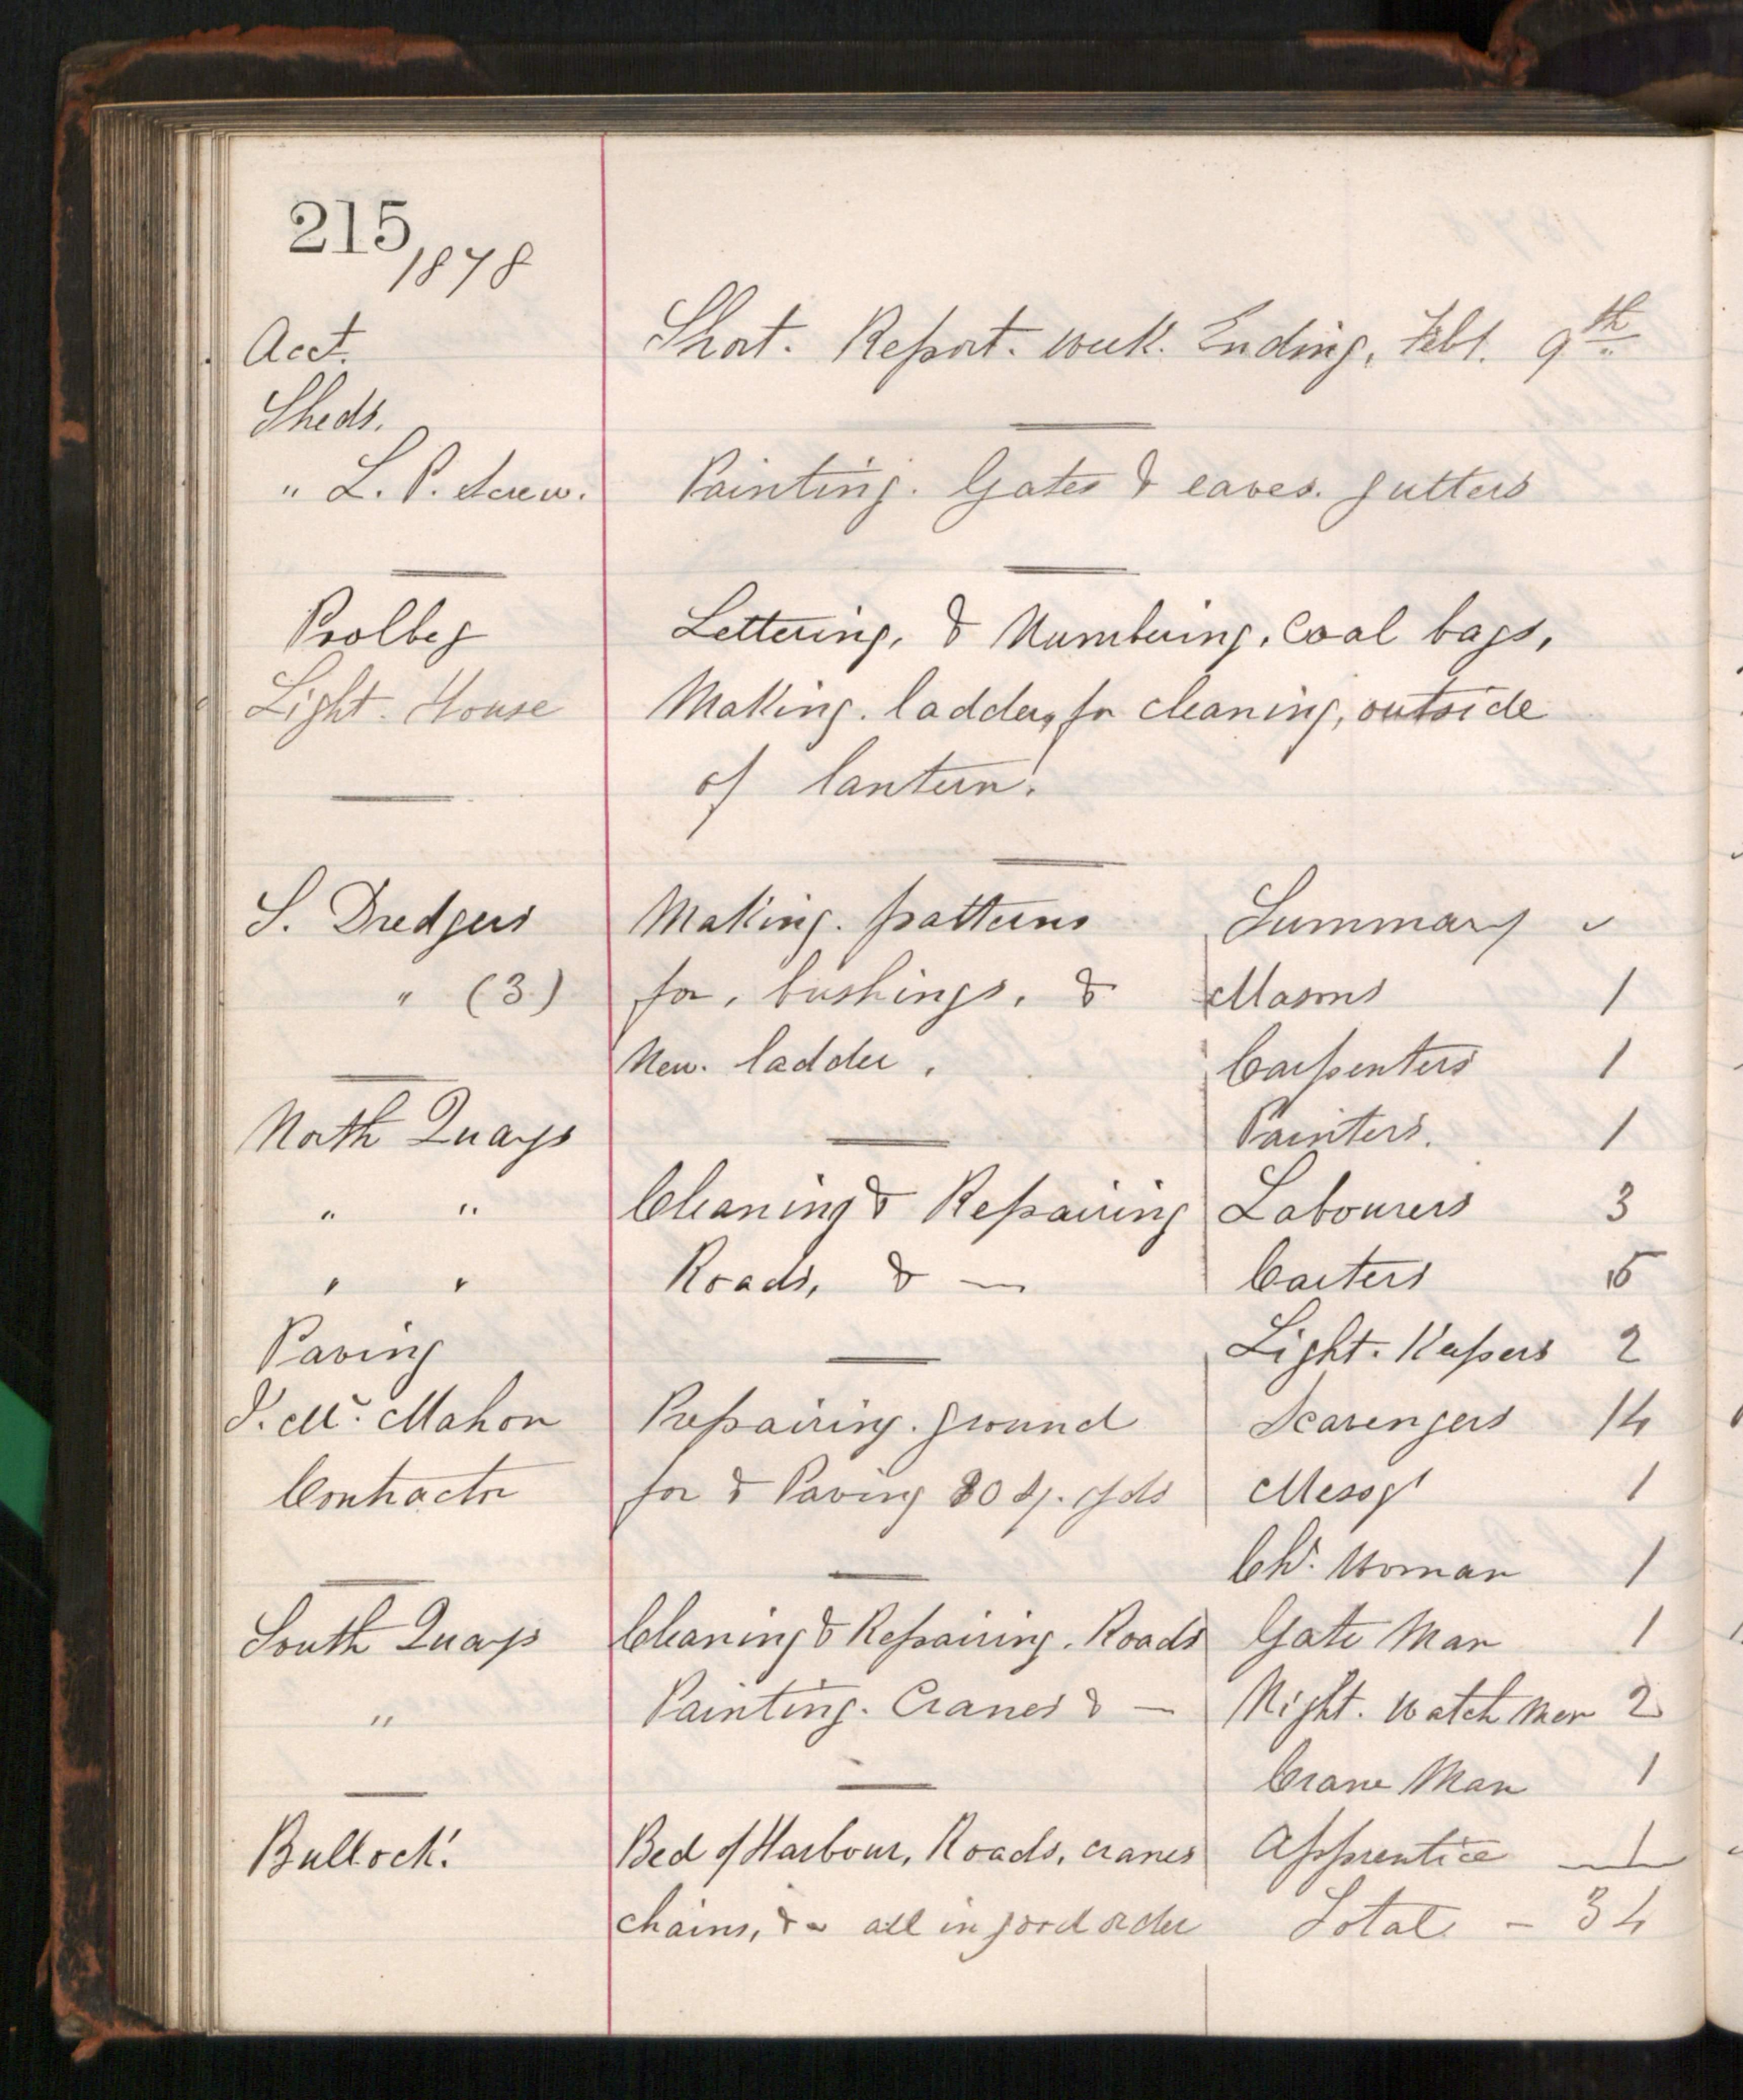 215
1878
Acct. Short. Report. week. Ending, Feb. 9th
Sheds.
" L. P. Screw. Painting. Gates & eaves. gutters
Poolbeg Lettering, & Numbering, Coal bags,
Light. House Making. ladders, for cleaning, outside
of lantern.
S. Dredgers Making. patterns Summary
" (3) for, bushings, & Masons 1
New. ladder. Carpenters 1
North Quays Painters. 1
" " Cleaning & Repairing Labourers 3
" " Roads, & — Carters 5
Paving Light. Keepers 2
Mc. Mahon Prepairing. ground Scavengers 14
Contractor for & Paving 80 Sq. yds Messgr 1
Chr. Woman 1
South Quays Cleaning & Repairing. Roads Gate Man 1
" Painting. Cranes & — Night. watch men 2
Crane Man 1
Bullock. Bed of Harbour, Roads, cranes Apprentice 1
chains, &c all in good order Total - 34